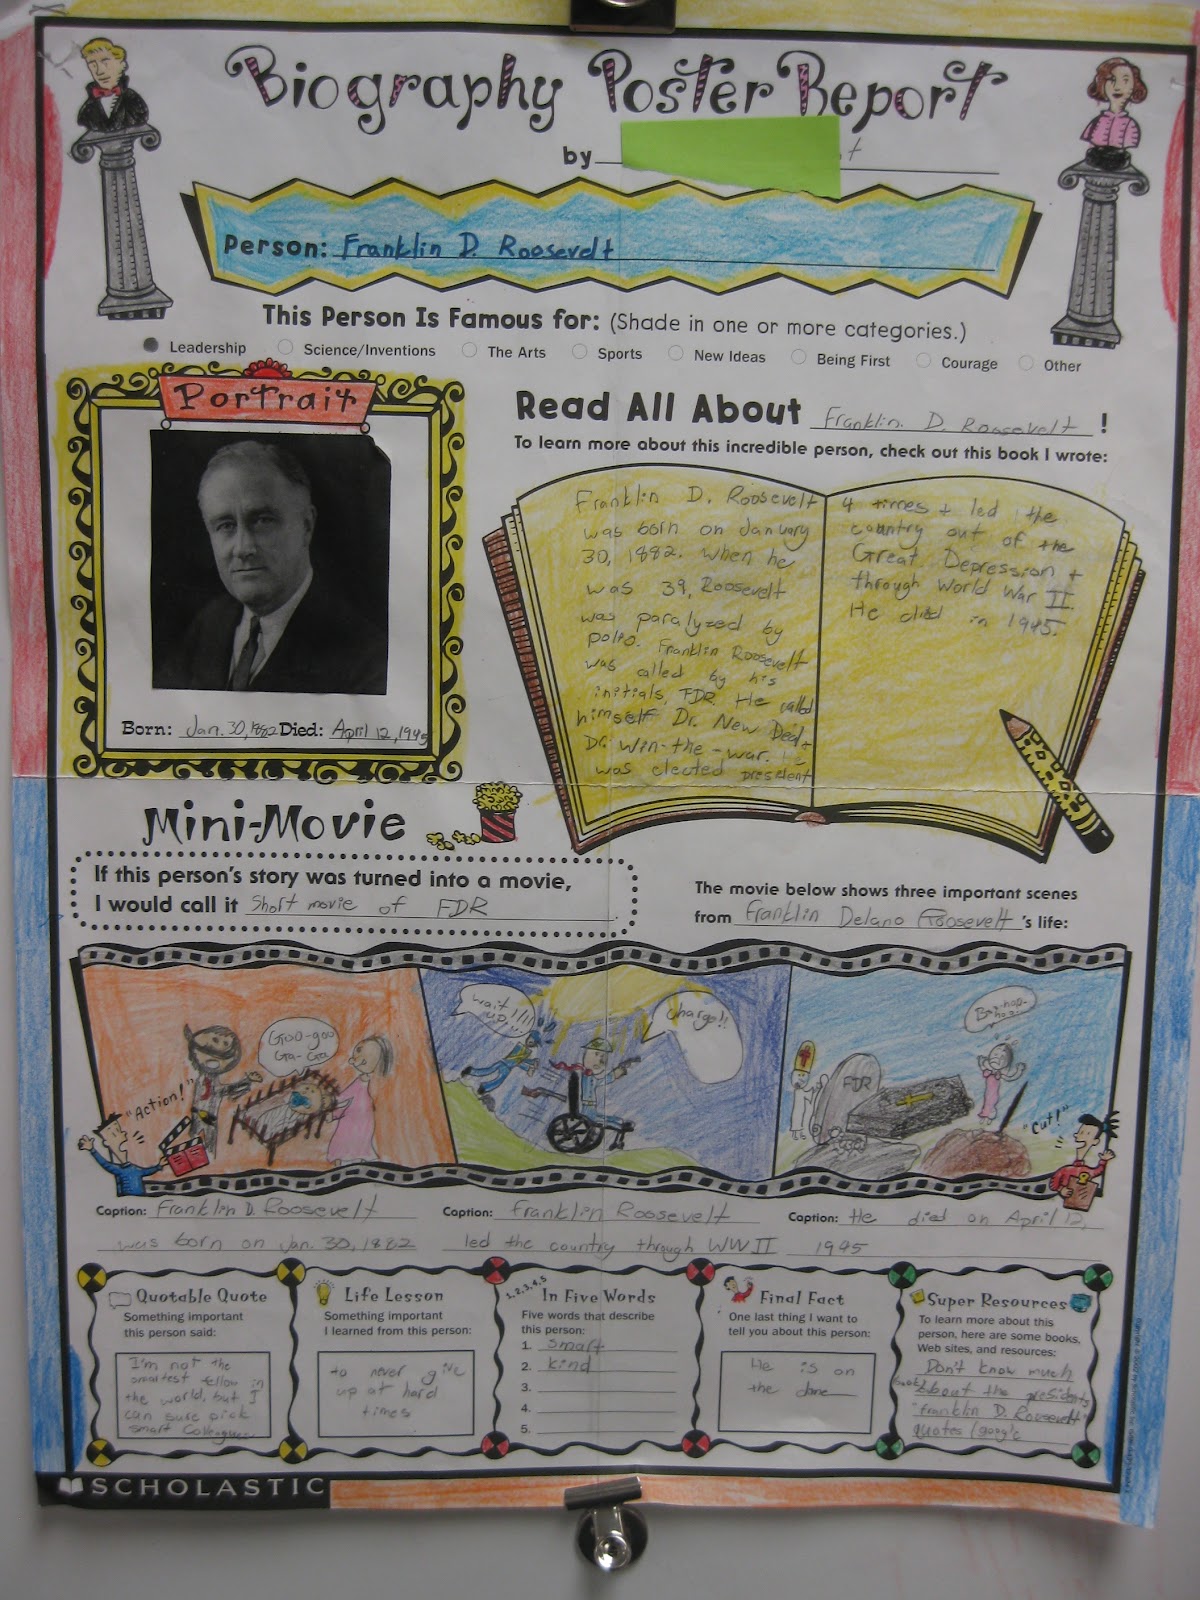 Biography Poster Report
by t
Person: Franklin D. Roosevelt
This Person Is Famous for: (Shade in one or more categories.)
Leadership Science/Inventions The Arts Sports New Ideas Being First Courage Other
Portrait
Born: Jan. 30, 1882 Died: April 12, 1945
Read All About Franklin. D. Roosevelt !
To learn more about this incredible person, check out this book I wrote:
Franklin D. Roosevelt
was born on January
30, 1882. when he
was 39, Roosevelt
was paralyzed by
polio. Franklin Roosevelt
was called by his
initials, FDR. He called
himself Dr. New Deal +
Dr. Win-the-war. He
was elected president
4 times + led the
country out of the
Great Depression +
through World War II.
He died in 1945.
Mini-Movie
If this person's story was turned into a movie,
I would call it Short movie of FDR
The movie below shows three important scenes
from Franklin Delano Roosevelt 's life:
"Action!"
Goo-goo
Ga-Ga
wait!!!!
up!
charge!!
FDR
"Cut!"
Caption: Franklin D. Roosevelt
was born on Jan. 30, 1882
Caption: Franklin Roosevelt
led the country through WW II
Caption: He died on April 12,
1945
Quotable Quote
Something important
this person said:
I'm not the
smartest fellow in
the world, but I
can sure pick
smart Colleagues
Life Lesson
Something important
I learned from this person:
to never give
up at hard
times
1, 2, 3, 4, 5
In Five Words
Five words that describe
this person:
1. smart
2. kind
3.
4.
5.
Final Fact
One last thing I want to
tell you about this person:
He is on
the dime
Super Resources
To learn more about this
person, here are some books,
Web sites, and resources:
Don't know much
about the presidents
"Franklin D. Roosevelt"
quotes/google
SCHOLASTIC